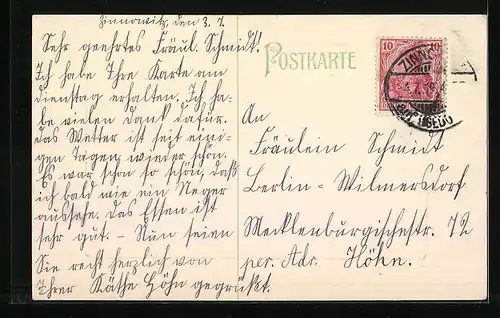 Zinnowitz, den 3. 7.
Sehr geehrtes Fräul. Schmidt!
Ich habe Ihre Karte am
dienstag erhalten. Ich ha-
be vielen dank dafür.
das Wetter ist seit eini-
gen Tagen wieder schön.
Es war schon so schön, daß
ich bald wie ein Neger
aussehe. das Essen ist
sehr gut. – Nun seien
Sie recht herzlich von
Ihrer Käthe Höhn gegrüßt.
POSTKARTE
10 10
An
Fräulein Schmidt
Berlin-Wilmersdorf
Mecklenburgischestr. 72
per. Adr. Höhn.